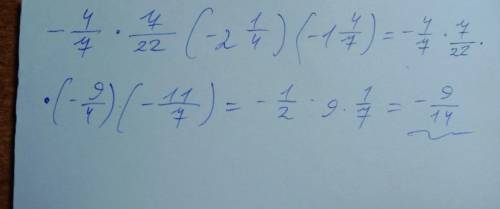 -4/7 · 7/22 (-2 1/4) (-1 4/7) = -4/7 · 7/22 ·
· (-9/4) · (-11/7) = -1/2 · 9 · 1/7 = -9/14